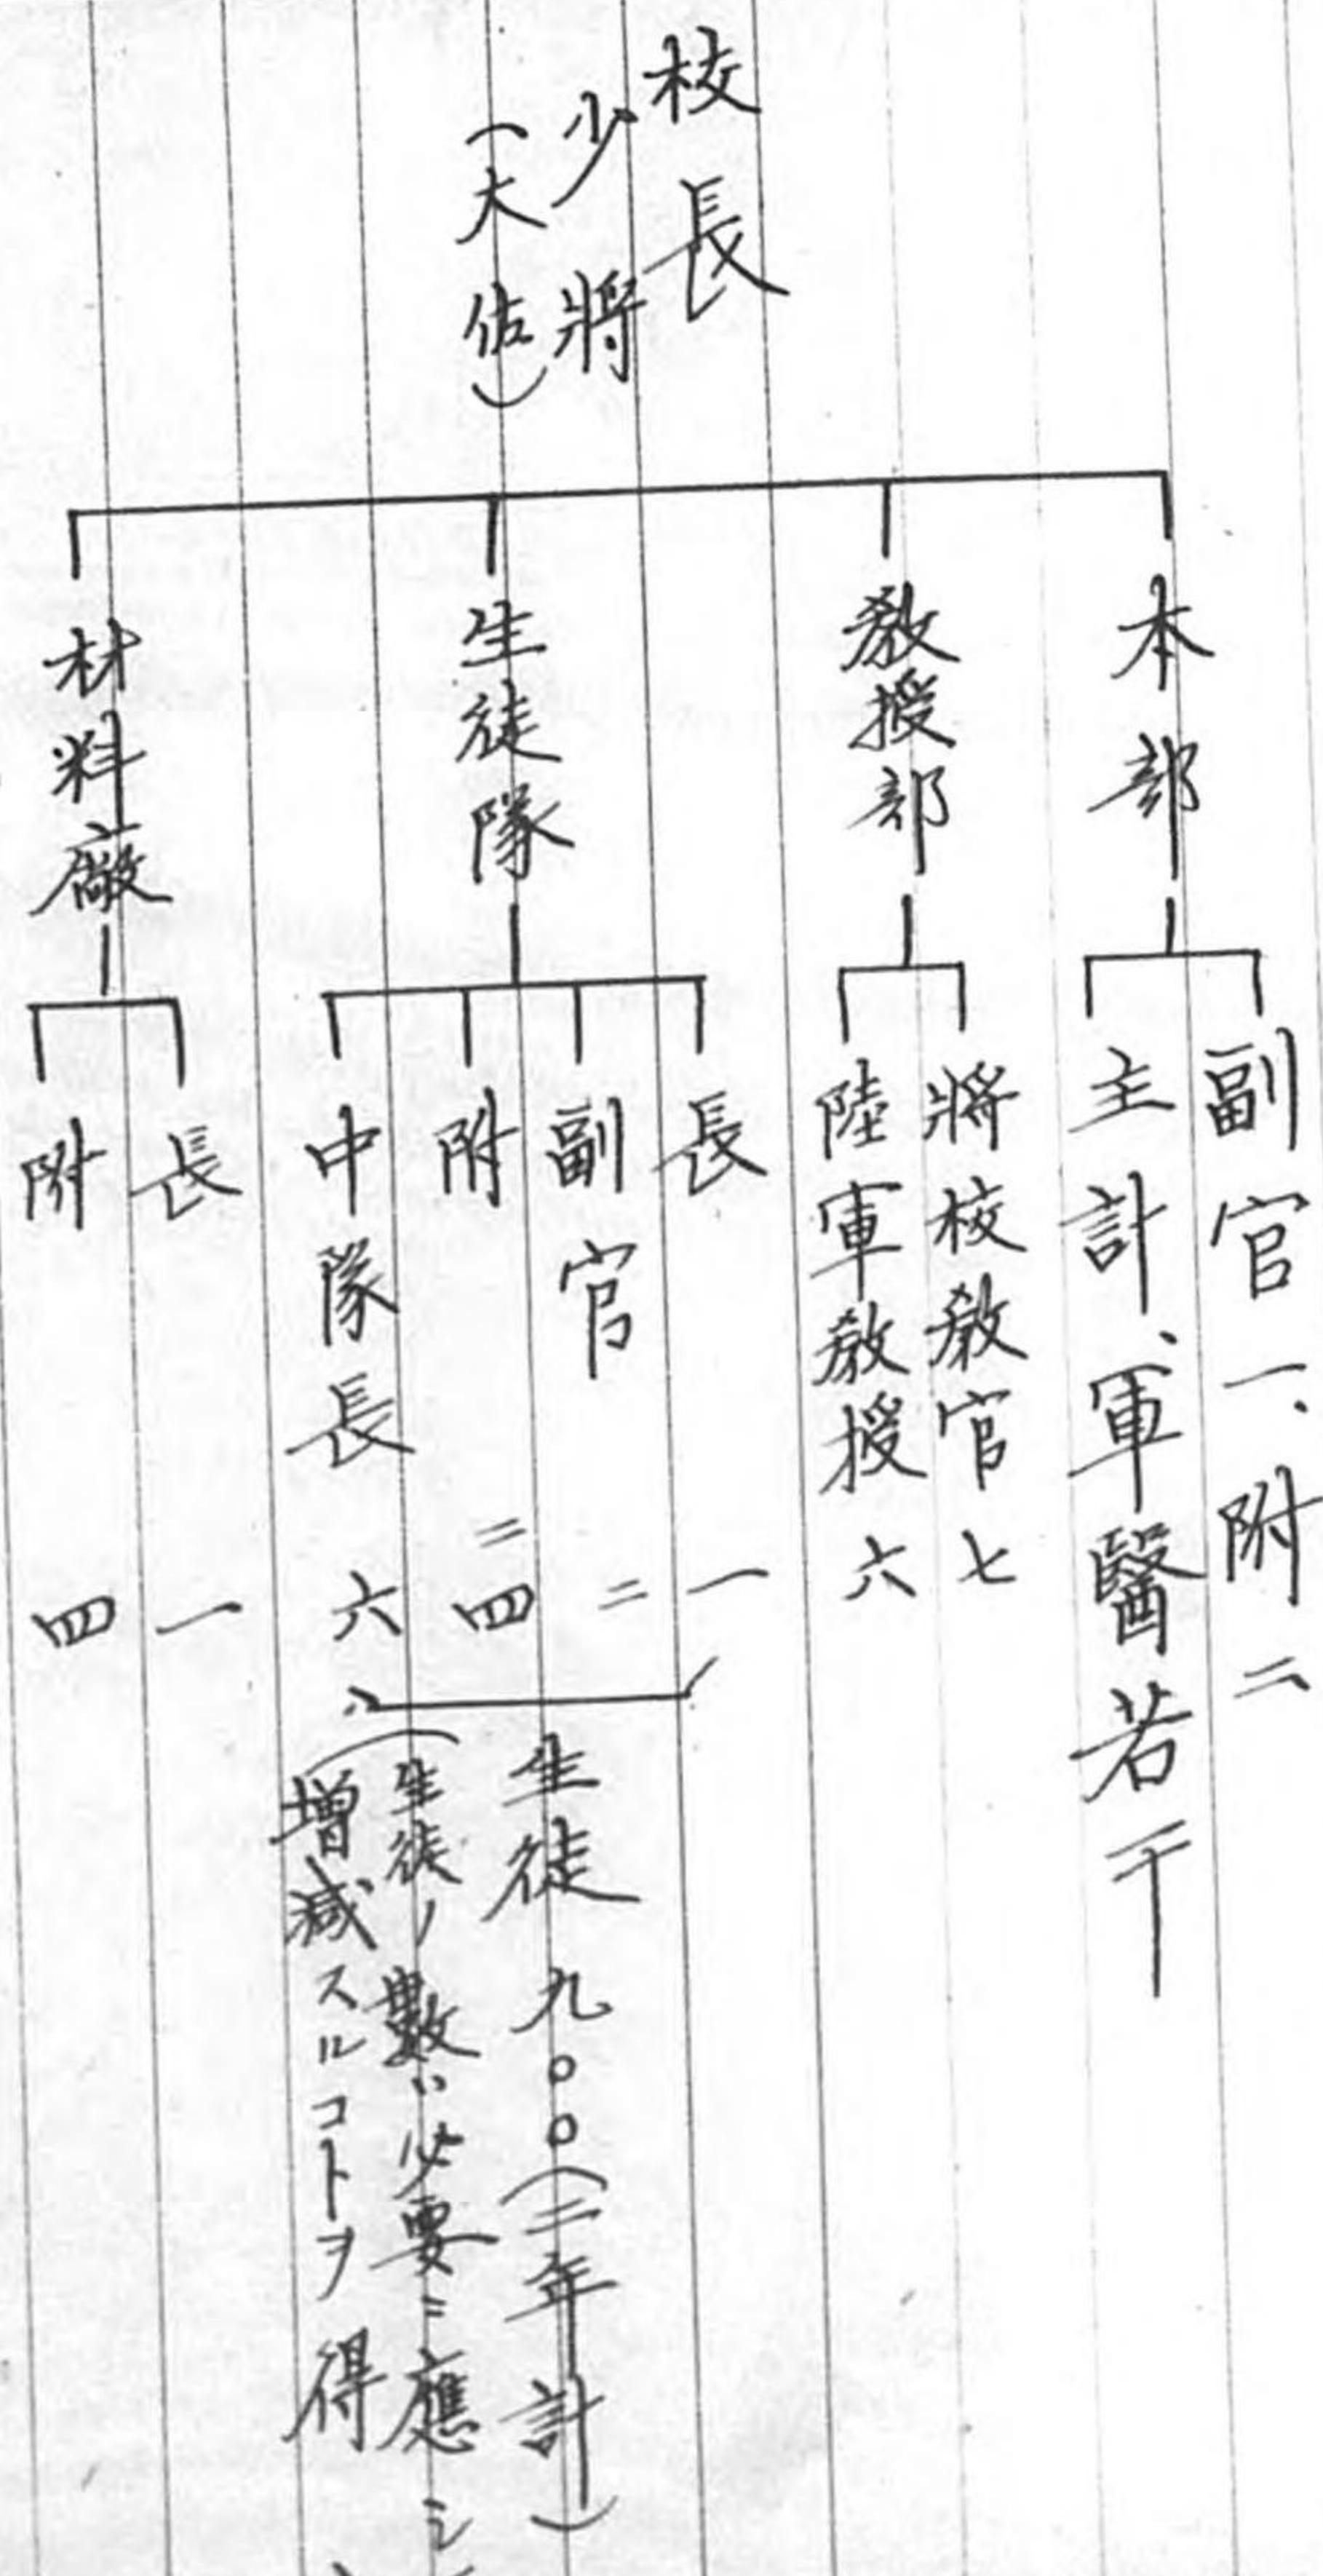 校長
少將
（大佐）
本部
副官一、附二
主計、軍醫若干
教授部
將校教官七
陸軍教授六
生徒隊
長一
副官二
附二四
中隊長六
生徒九〇〇（二年計）
（生徒ノ數ハ必要ニ應シ
增減スルコトヲ得
材料廠
長一
附四